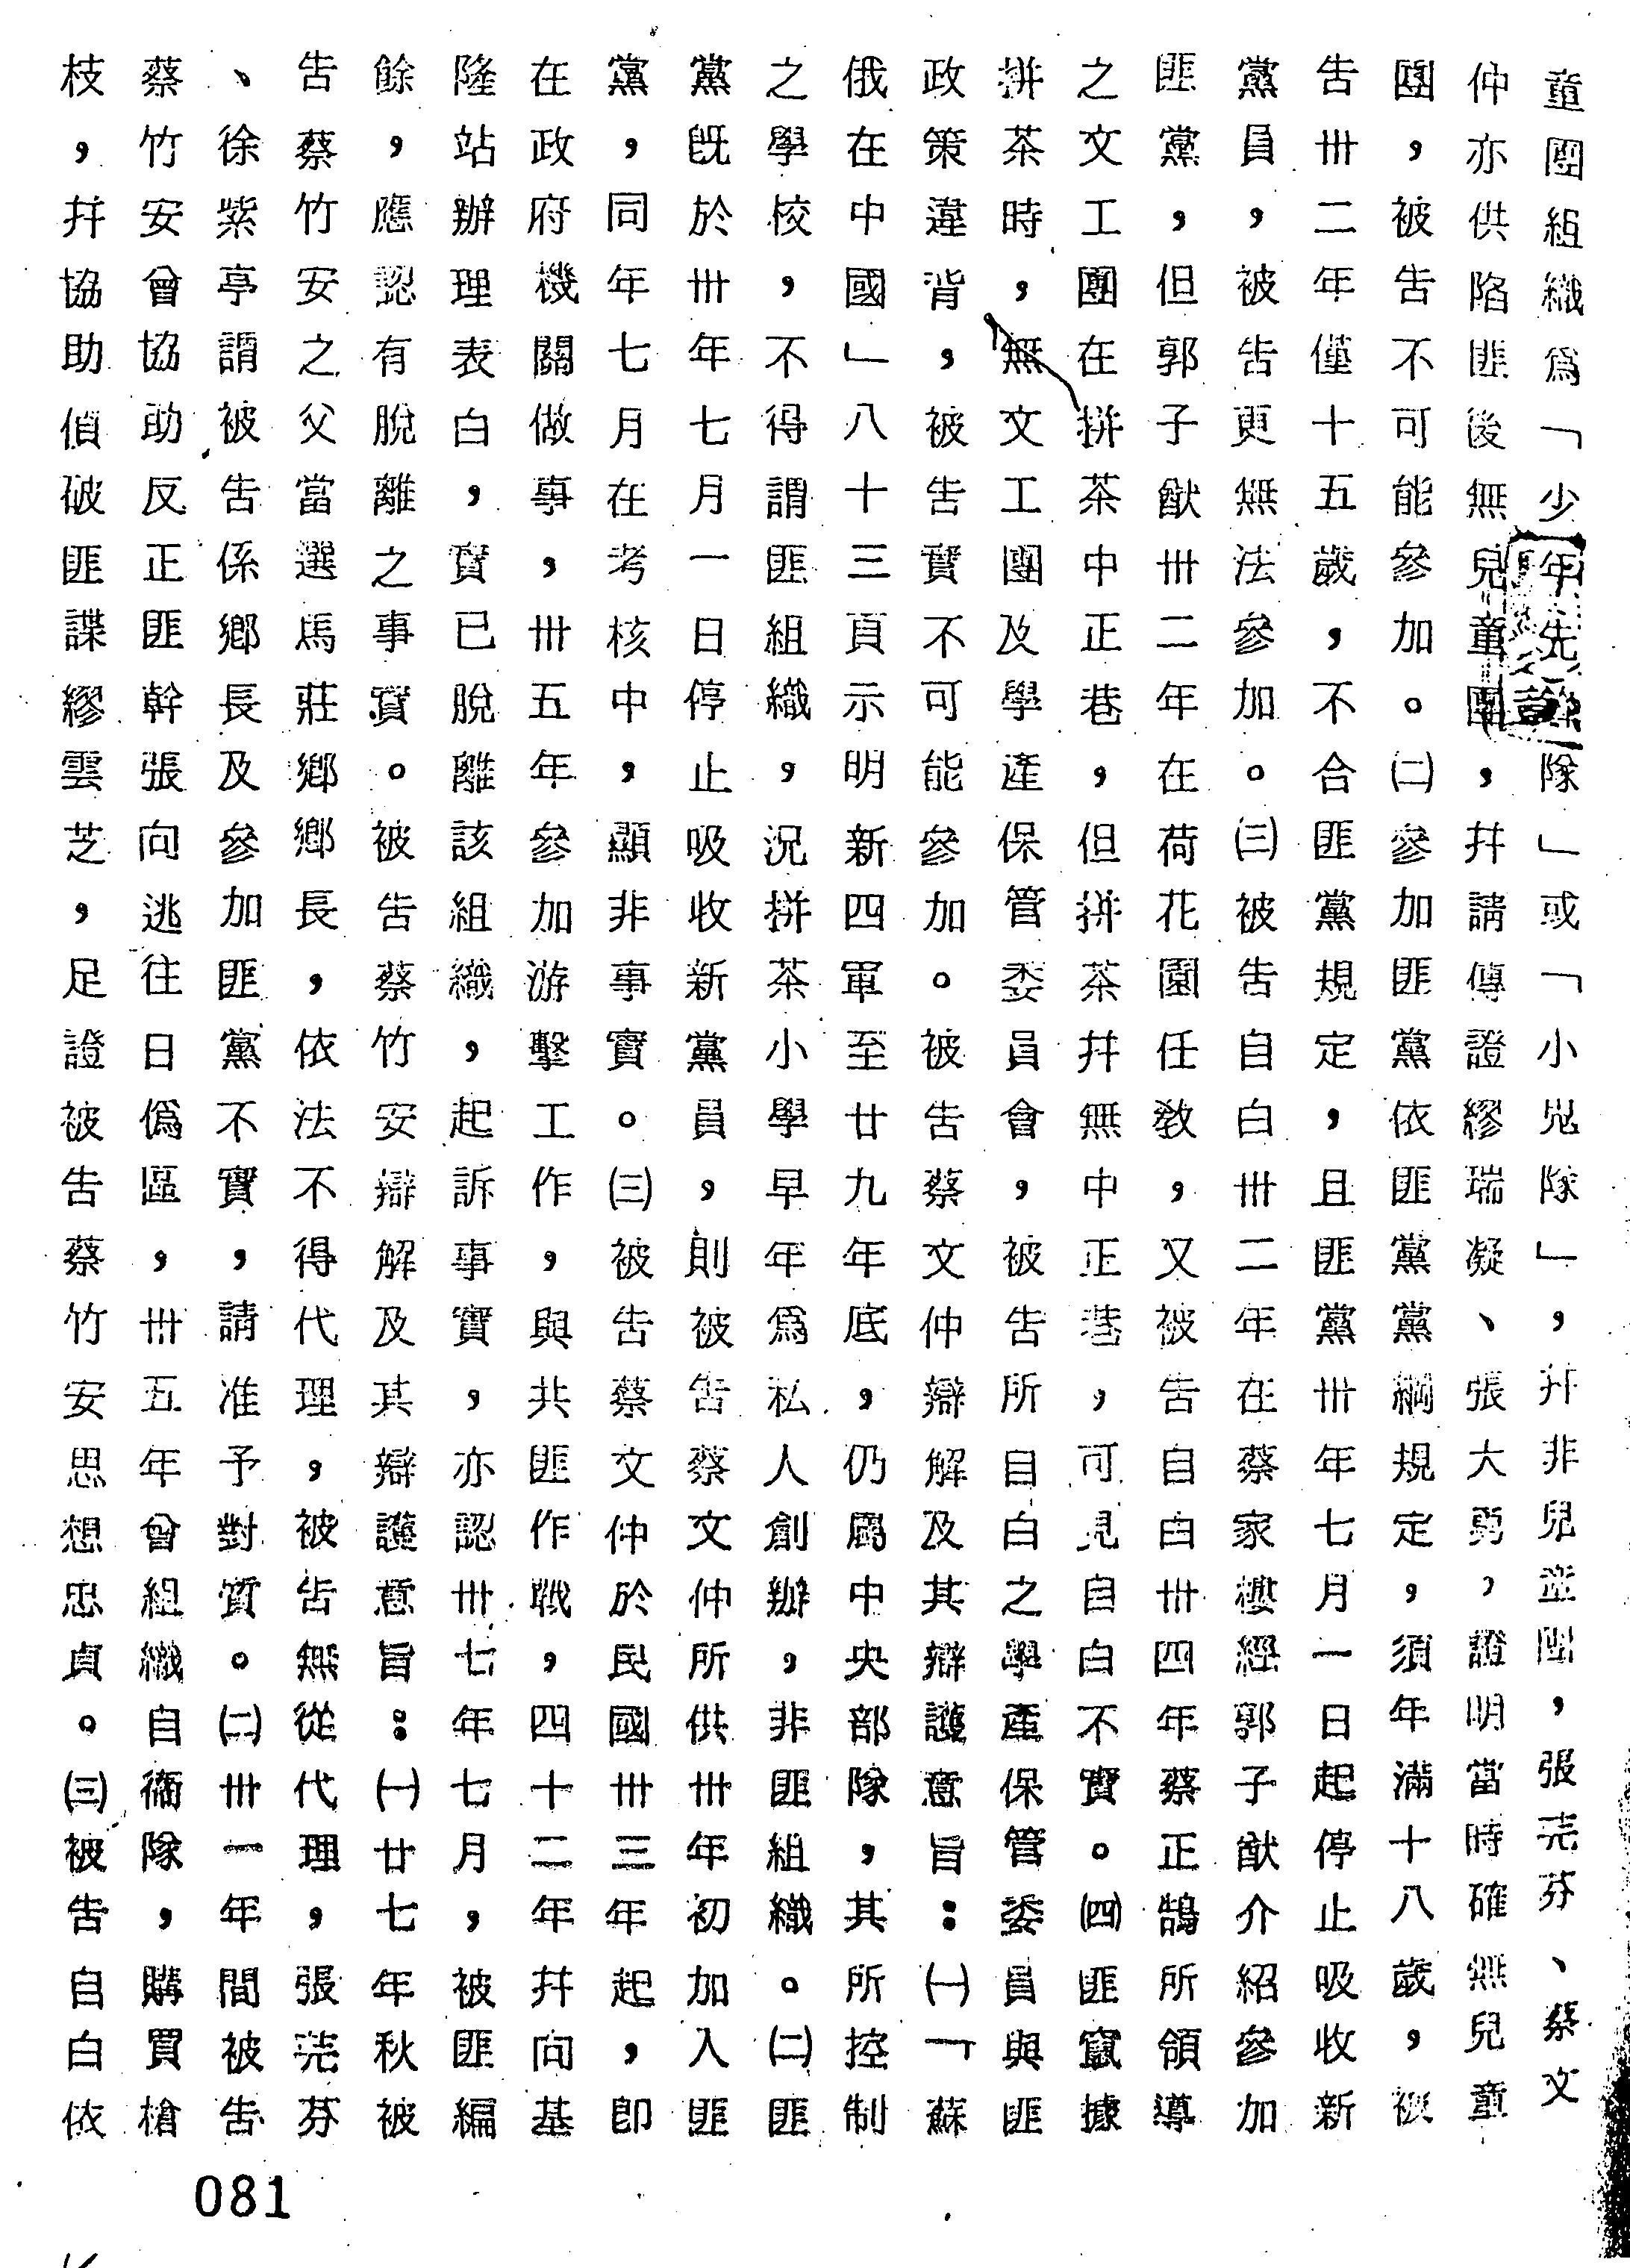 童團組織爲「少年先隊」或「小鬼隊」,幷非兒童團,張莞芬、蔡文
仲亦供陷匪後無兒童團,幷請傳證繆瑞凝、張大勇,證明當時確無兒童
團,被告不可能參加。㈡參加匪黨依匪黨黨綱規定,須年滿十八歲,被
告卅二年僅十五歲,不合匪黨規定,且匪黨卅年七月一日起停止吸收新
黨員,被告更無法參加。㈢被告自白卅二年在蔡家樓經郭子猷介紹參加
匪黨,但郭子猷卅二年在荷花園任教,又被告自白卅四年蔡正鵠所領導
之文工團在拼茶中正巷,但拼茶幷無中正巷,可見自白不實。㈣匪竄據
拼茶時,無文工團及學產保管委員會,被告所自白之學產保管委員與匪
政策違背,被告實不可能參加。被告蔡文仲辯解及其辯護意旨:㈠「蘇
俄在中國」八十三頁示明新四軍至廿九年年底,仍屬中央部隊,其所控制
之學校,不得謂匪組織,況拼茶小學早年爲私人創辦,非匪組織。㈡匪
黨既於卅年七月一日停止吸收新黨員,則被告蔡文仲所供卅年初加入匪
黨,同年七月在考核中,顯非事實。㈢被告蔡文仲於民國卅三年起,即
在政府機關做事,卅五年參加游擊工作,與共匪作戰,四十二年幷向基
隆站辦理表白,實已脫離該組織,起訴事實,亦認卅七年七月,被匪編
餘,應認有脫離之事實。被告蔡竹安辯解及其辯護意旨:㈠廿七年秋被
告蔡竹安之父當選馬莊鄉鄉長,依法不得代理,被告無從代理,張莞芬
、徐紫亭謂被告係鄉長及參加匪黨不實,請准予對質。㈡卅一年間被告
蔡竹安曾協助反正匪幹張向逃往日僞區,卅五年曾組織自衞隊,購買槍
枝,幷協助偵破匪諜繆雲芝,足證被告蔡竹安思想忠貞。㈢被告自白依
081